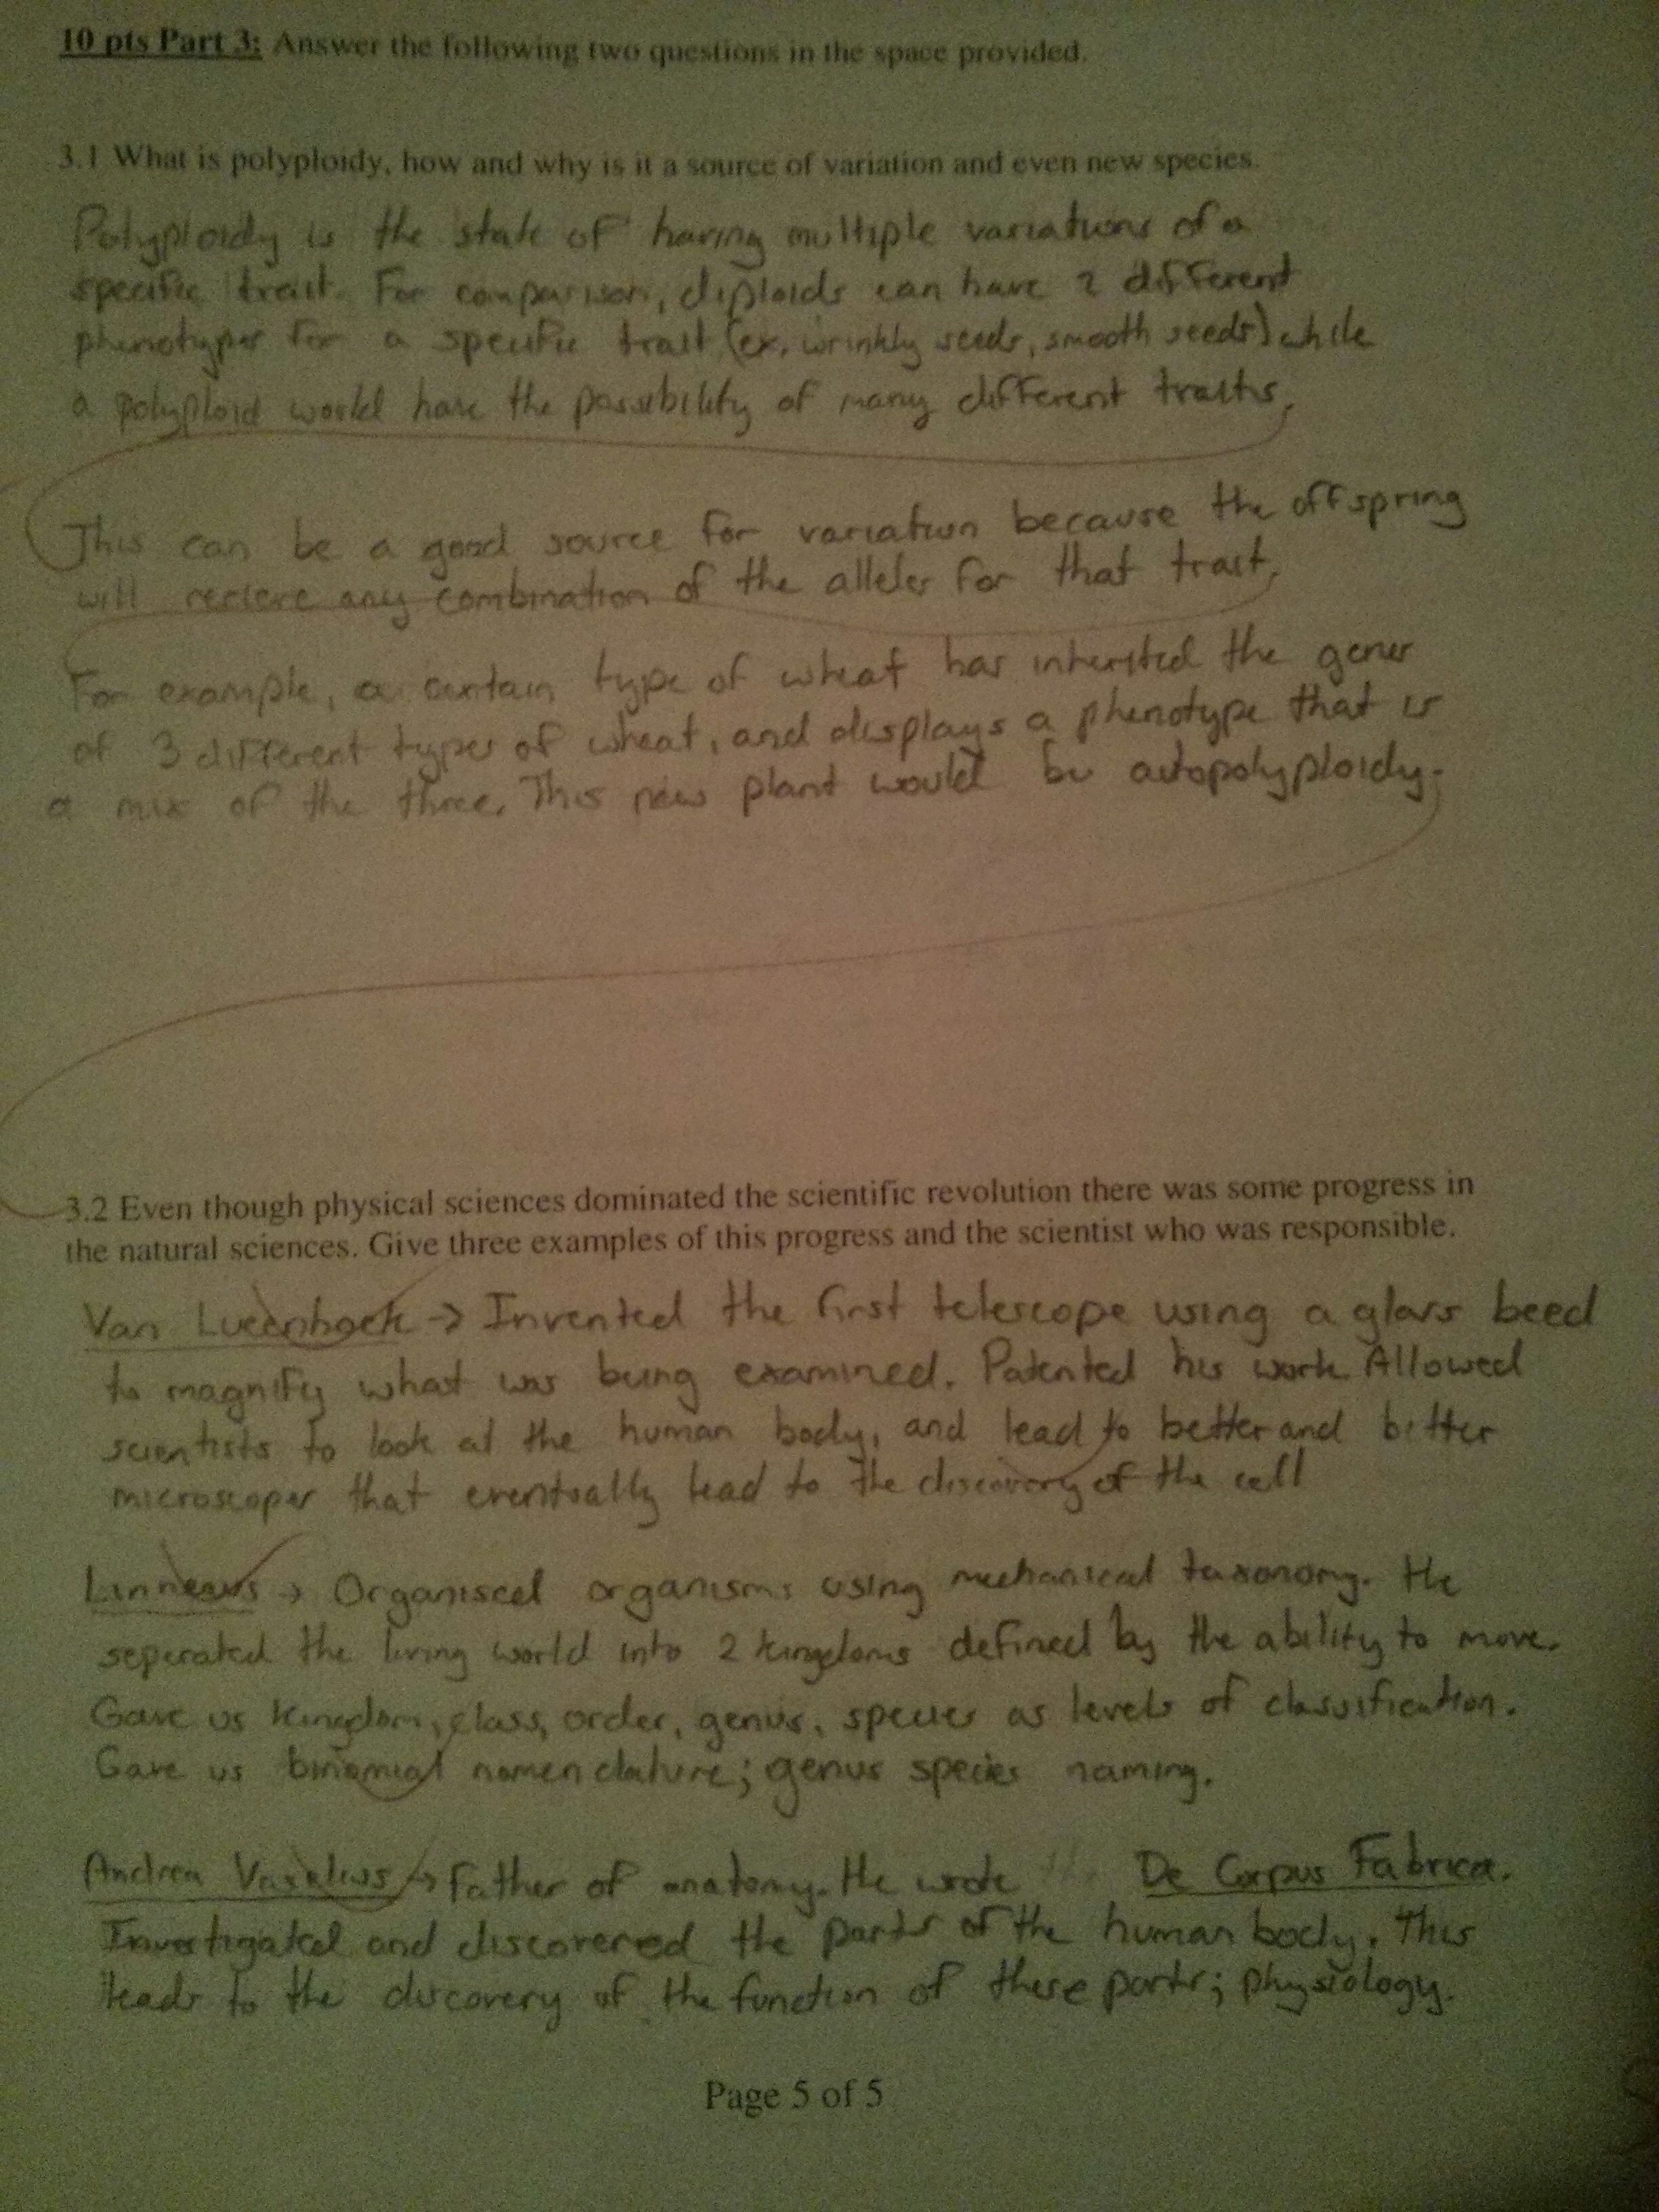 10 pts Part 3: Answer the following two questions in the space provided.
3.1 What is polyploidy, how and why is it a source of variation and even new species.
Polyploidy is the state of having multiple variations of a
specific trait. For comparison, diploids can have 2 different
phenotypes for a specific trait (ex. wrinkly seeds, smooth seeds) while
a polyploid would have the possibility of many different traits.
This can be a good source for variation because the offspring
will recieve any combination of the alleles for that trait.
For example, a certain type of wheat has inherited the genes
of 3 different types of wheat, and displays a phenotype that is
a mix of the three. This new plant would be autopolyploidy.
3.2 Even though physical sciences dominated the scientific revolution there was some progress in
the natural sciences. Give three examples of this progress and the scientist who was responsible.
Van → Invented the first telescope using a glass beed
to magnify what was being examined. Patented his work. Allowed
scientists to look at the human body, and lead to better and better
microscopes that eventually lead to the discovery of the cell
Linneaus → Organised organisms using mechanical taxonomy. He
seperated the living world into 2 kingdoms defined by the ability to move.
Gave us kingdom, class, order, genius, species as levels of classification.
Gave us binomial nomenclature; genus species naming.
Andrea → Father of anatomy. He wrote De Corpus Fabrica.
Investigated and discovered the parts of the human body. This
leads to the discovery of the function of these parts; physiology.
Page 5 of 5